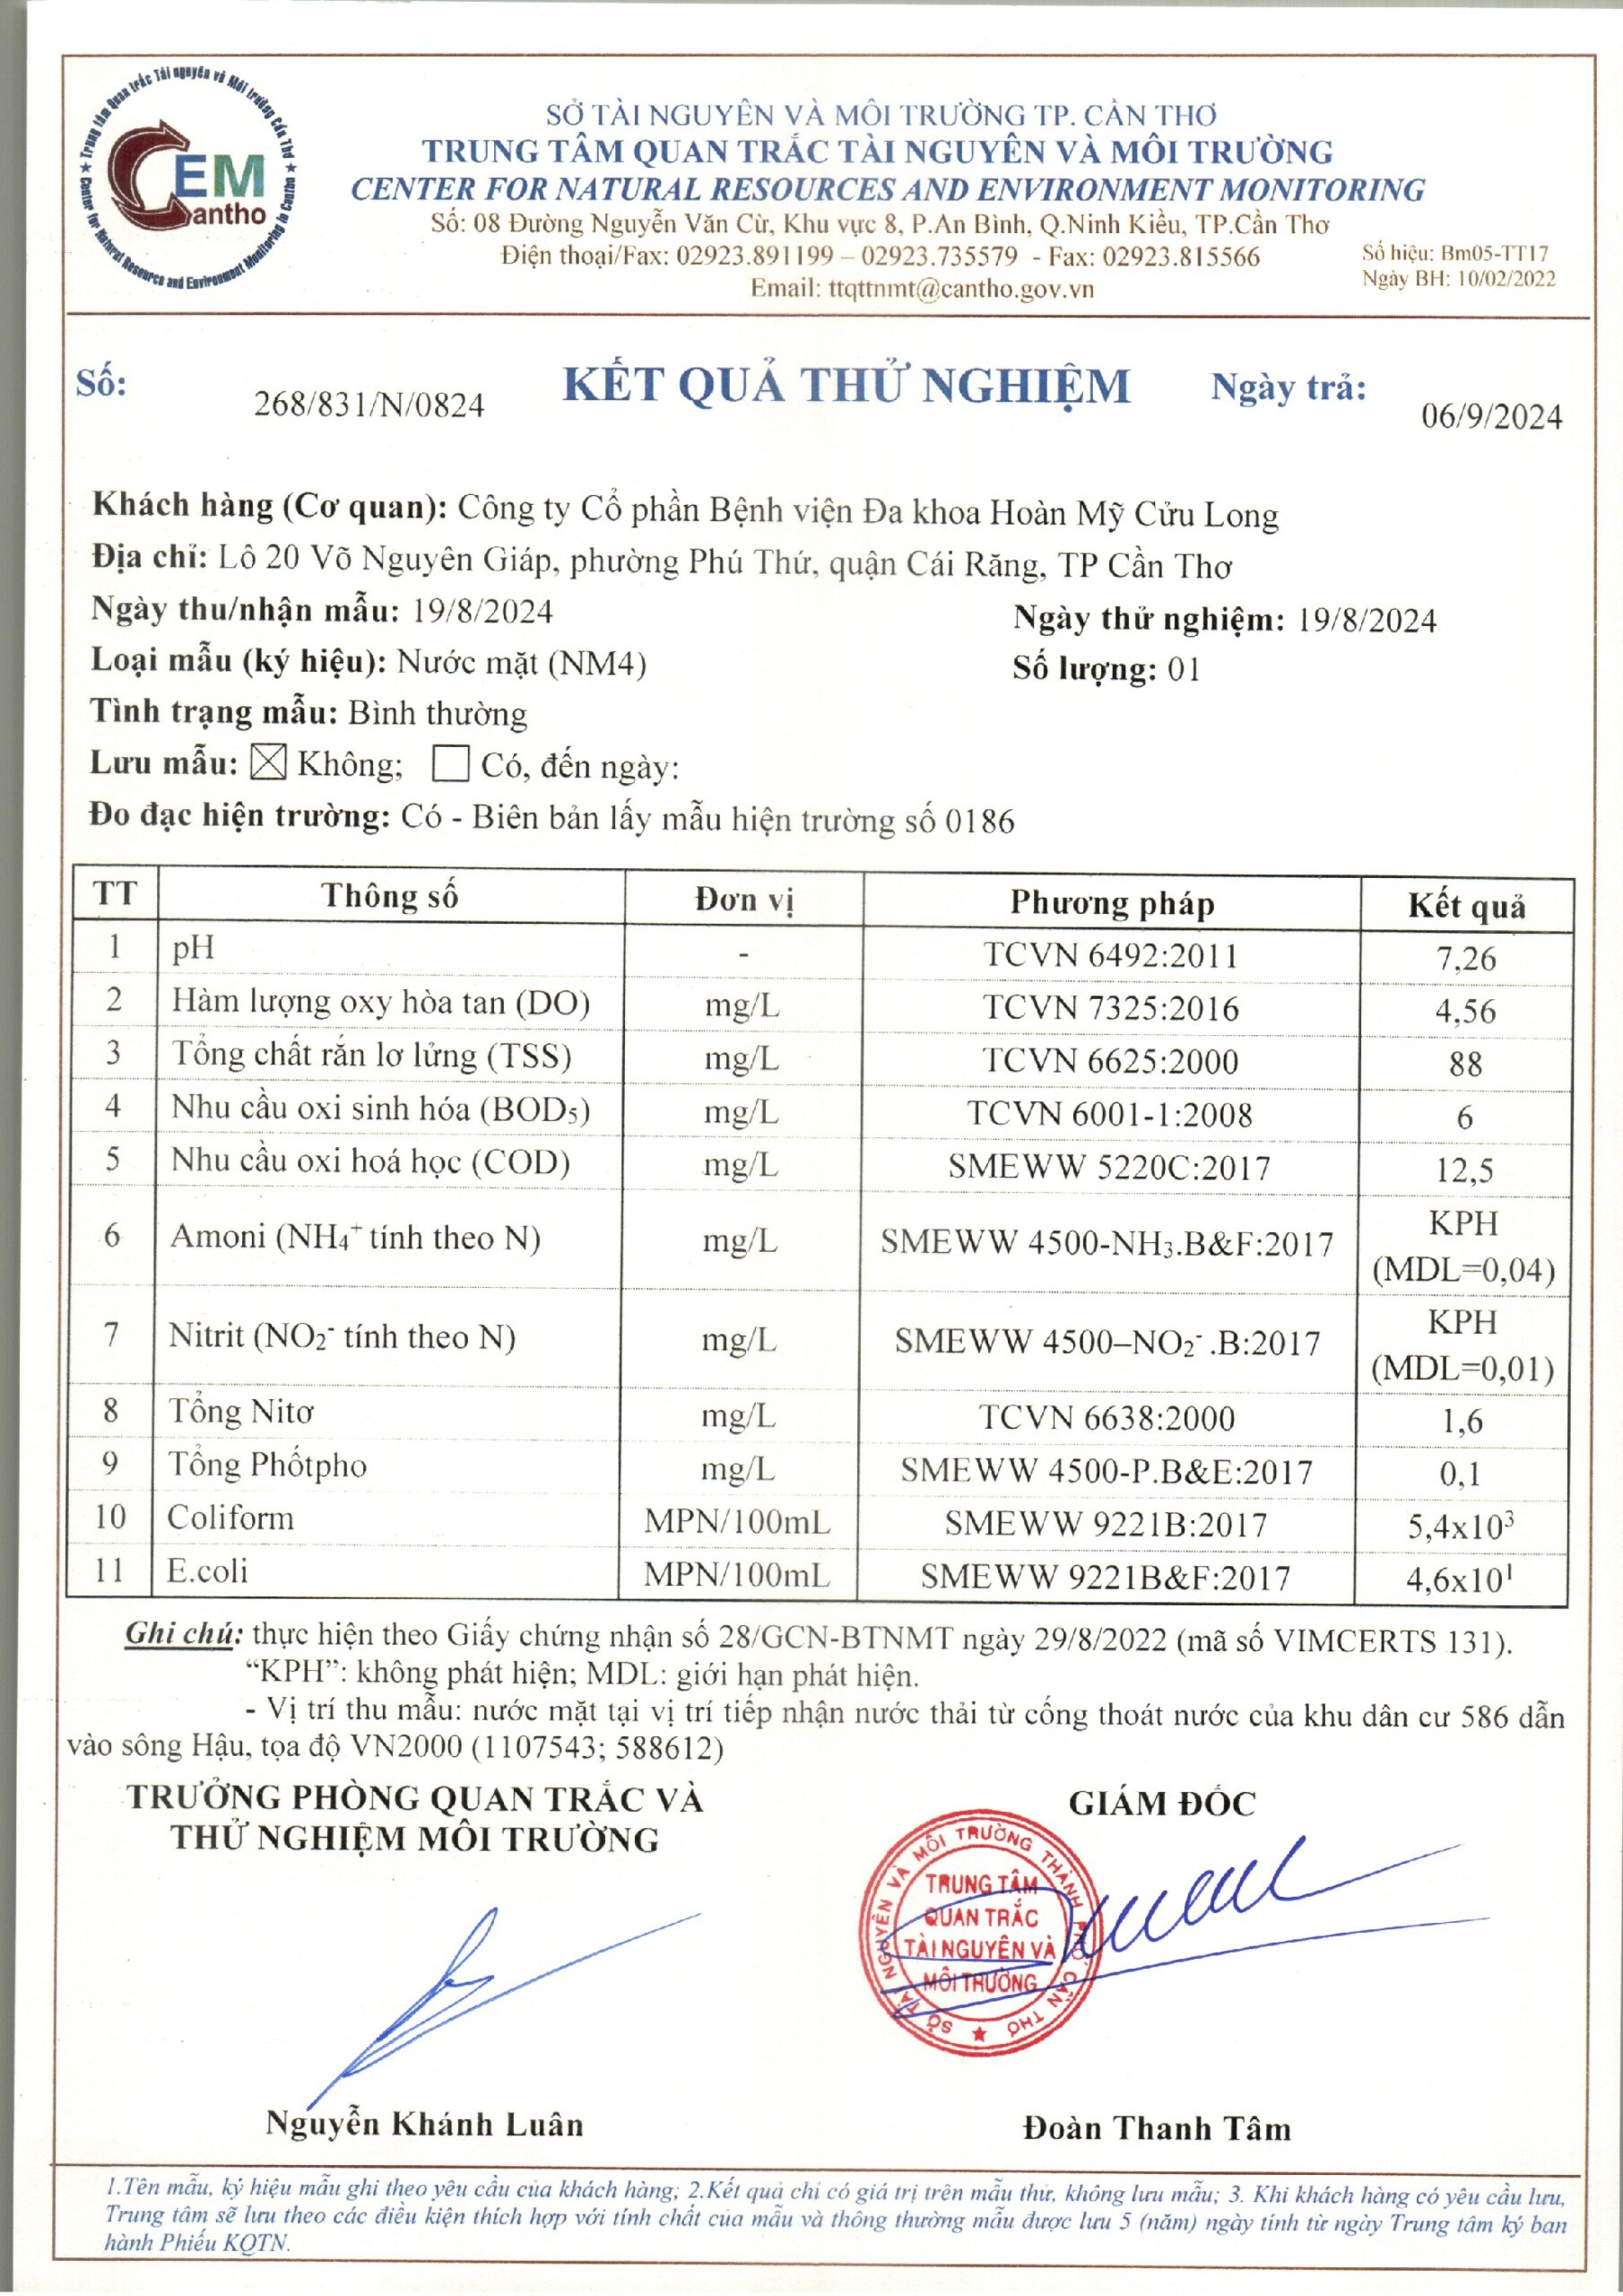 Trung tâm Quan trắc Tài nguyên và Môi trường Cần Thơ
Center for Natural Resource and Environment Monitoring in Cantho
CEM
Cantho
SỞ TÀI NGUYÊN VÀ MÔI TRƯỜNG TP. CẦN THƠ
TRUNG TÂM QUAN TRẮC TÀI NGUYÊN VÀ MÔI TRƯỜNG
CENTER FOR NATURAL RESOURCES AND ENVIRONMENT MONITORING
Số: 08 Đường Nguyễn Văn Cừ, Khu vực 8, P.An Bình, Q.Ninh Kiều, TP.Cần Thơ
Điện thoại/Fax: 02923.891199 – 02923.735579 - Fax: 02923.815566
Email: ttqttnmt@cantho.gov.vn
Số hiệu: Bm05-TT17
Ngày BH: 10/02/2022
Số: 268/831/N/0824 KẾT QUẢ THỬ NGHIỆM Ngày trả: 06/9/2024
Khách hàng (Cơ quan): Công ty Cổ phần Bệnh viện Đa khoa Hoàn Mỹ Cửu Long
Địa chỉ: Lô 20 Võ Nguyên Giáp, phường Phú Thứ, quận Cái Răng, TP Cần Thơ
Ngày thu/nhận mẫu: 19/8/2024 Ngày thử nghiệm: 19/8/2024
Loại mẫu (ký hiệu): Nước mặt (NM4) Số lượng: 01
Tình trạng mẫu: Bình thường
Lưu mẫu: ☒ Không; ☐ Có, đến ngày:
Đo đạc hiện trường: Có - Biên bản lấy mẫu hiện trường số 0186
TT Thông số Đơn vị Phương pháp Kết quả
1 pH - TCVN 6492:2011 7,26
2 Hàm lượng oxy hòa tan (DO) mg/L TCVN 7325:2016 4,56
3 Tổng chất rắn lơ lửng (TSS) mg/L TCVN 6625:2000 88
4 Nhu cầu oxi sinh hóa (BOD₅) mg/L TCVN 6001-1:2008 6
5 Nhu cầu oxi hoá học (COD) mg/L SMEWW 5220C:2017 12,5
6 Amoni (NH₄⁺ tính theo N) mg/L SMEWW 4500-NH₃.B&F:2017 KPH (MDL=0,04)
7 Nitrit (NO₂⁻ tính theo N) mg/L SMEWW 4500–NO₂⁻ .B:2017 KPH (MDL=0,01)
8 Tổng Nitơ mg/L TCVN 6638:2000 1,6
9 Tổng Phốtpho mg/L SMEWW 4500-P.B&E:2017 0,1
10 Coliform MPN/100mL SMEWW 9221B:2017 5,4x10³
11 E.coli MPN/100mL SMEWW 9221B&F:2017 4,6x10¹
Ghi chú: thực hiện theo Giấy chứng nhận số 28/GCN-BTNMT ngày 29/8/2022 (mã số VIMCERTS 131).
“KPH”: không phát hiện; MDL: giới hạn phát hiện.
- Vị trí thu mẫu: nước mặt tại vị trí tiếp nhận nước thải từ cống thoát nước của khu dân cư 586 dẫn
vào sông Hậu, tọa độ VN2000 (1107543; 588612)
TRƯỞNG PHÒNG QUAN TRẮC VÀ
THỬ NGHIỆM MÔI TRƯỜNG
GIÁM ĐỐC
SỞ TÀI NGUYÊN VÀ MÔI TRƯỜNG THÀNH PHỐ CẦN THƠ
TRUNG TÂM
QUAN TRẮC
TÀI NGUYÊN VÀ
MÔI TRƯỜNG
Nguyễn Khánh Luân
Đoàn Thanh Tâm
1.Tên mẫu, ký hiệu mẫu ghi theo yêu cầu của khách hàng; 2.Kết quả chỉ có giá trị trên mẫu thử, không lưu mẫu; 3. Khi khách hàng có yêu cầu lưu,
Trung tâm sẽ lưu theo các điều kiện thích hợp với tính chất của mẫu và thông thường mẫu được lưu 5 (năm) ngày tính từ ngày Trung tâm ký ban
hành Phiếu KQTN.